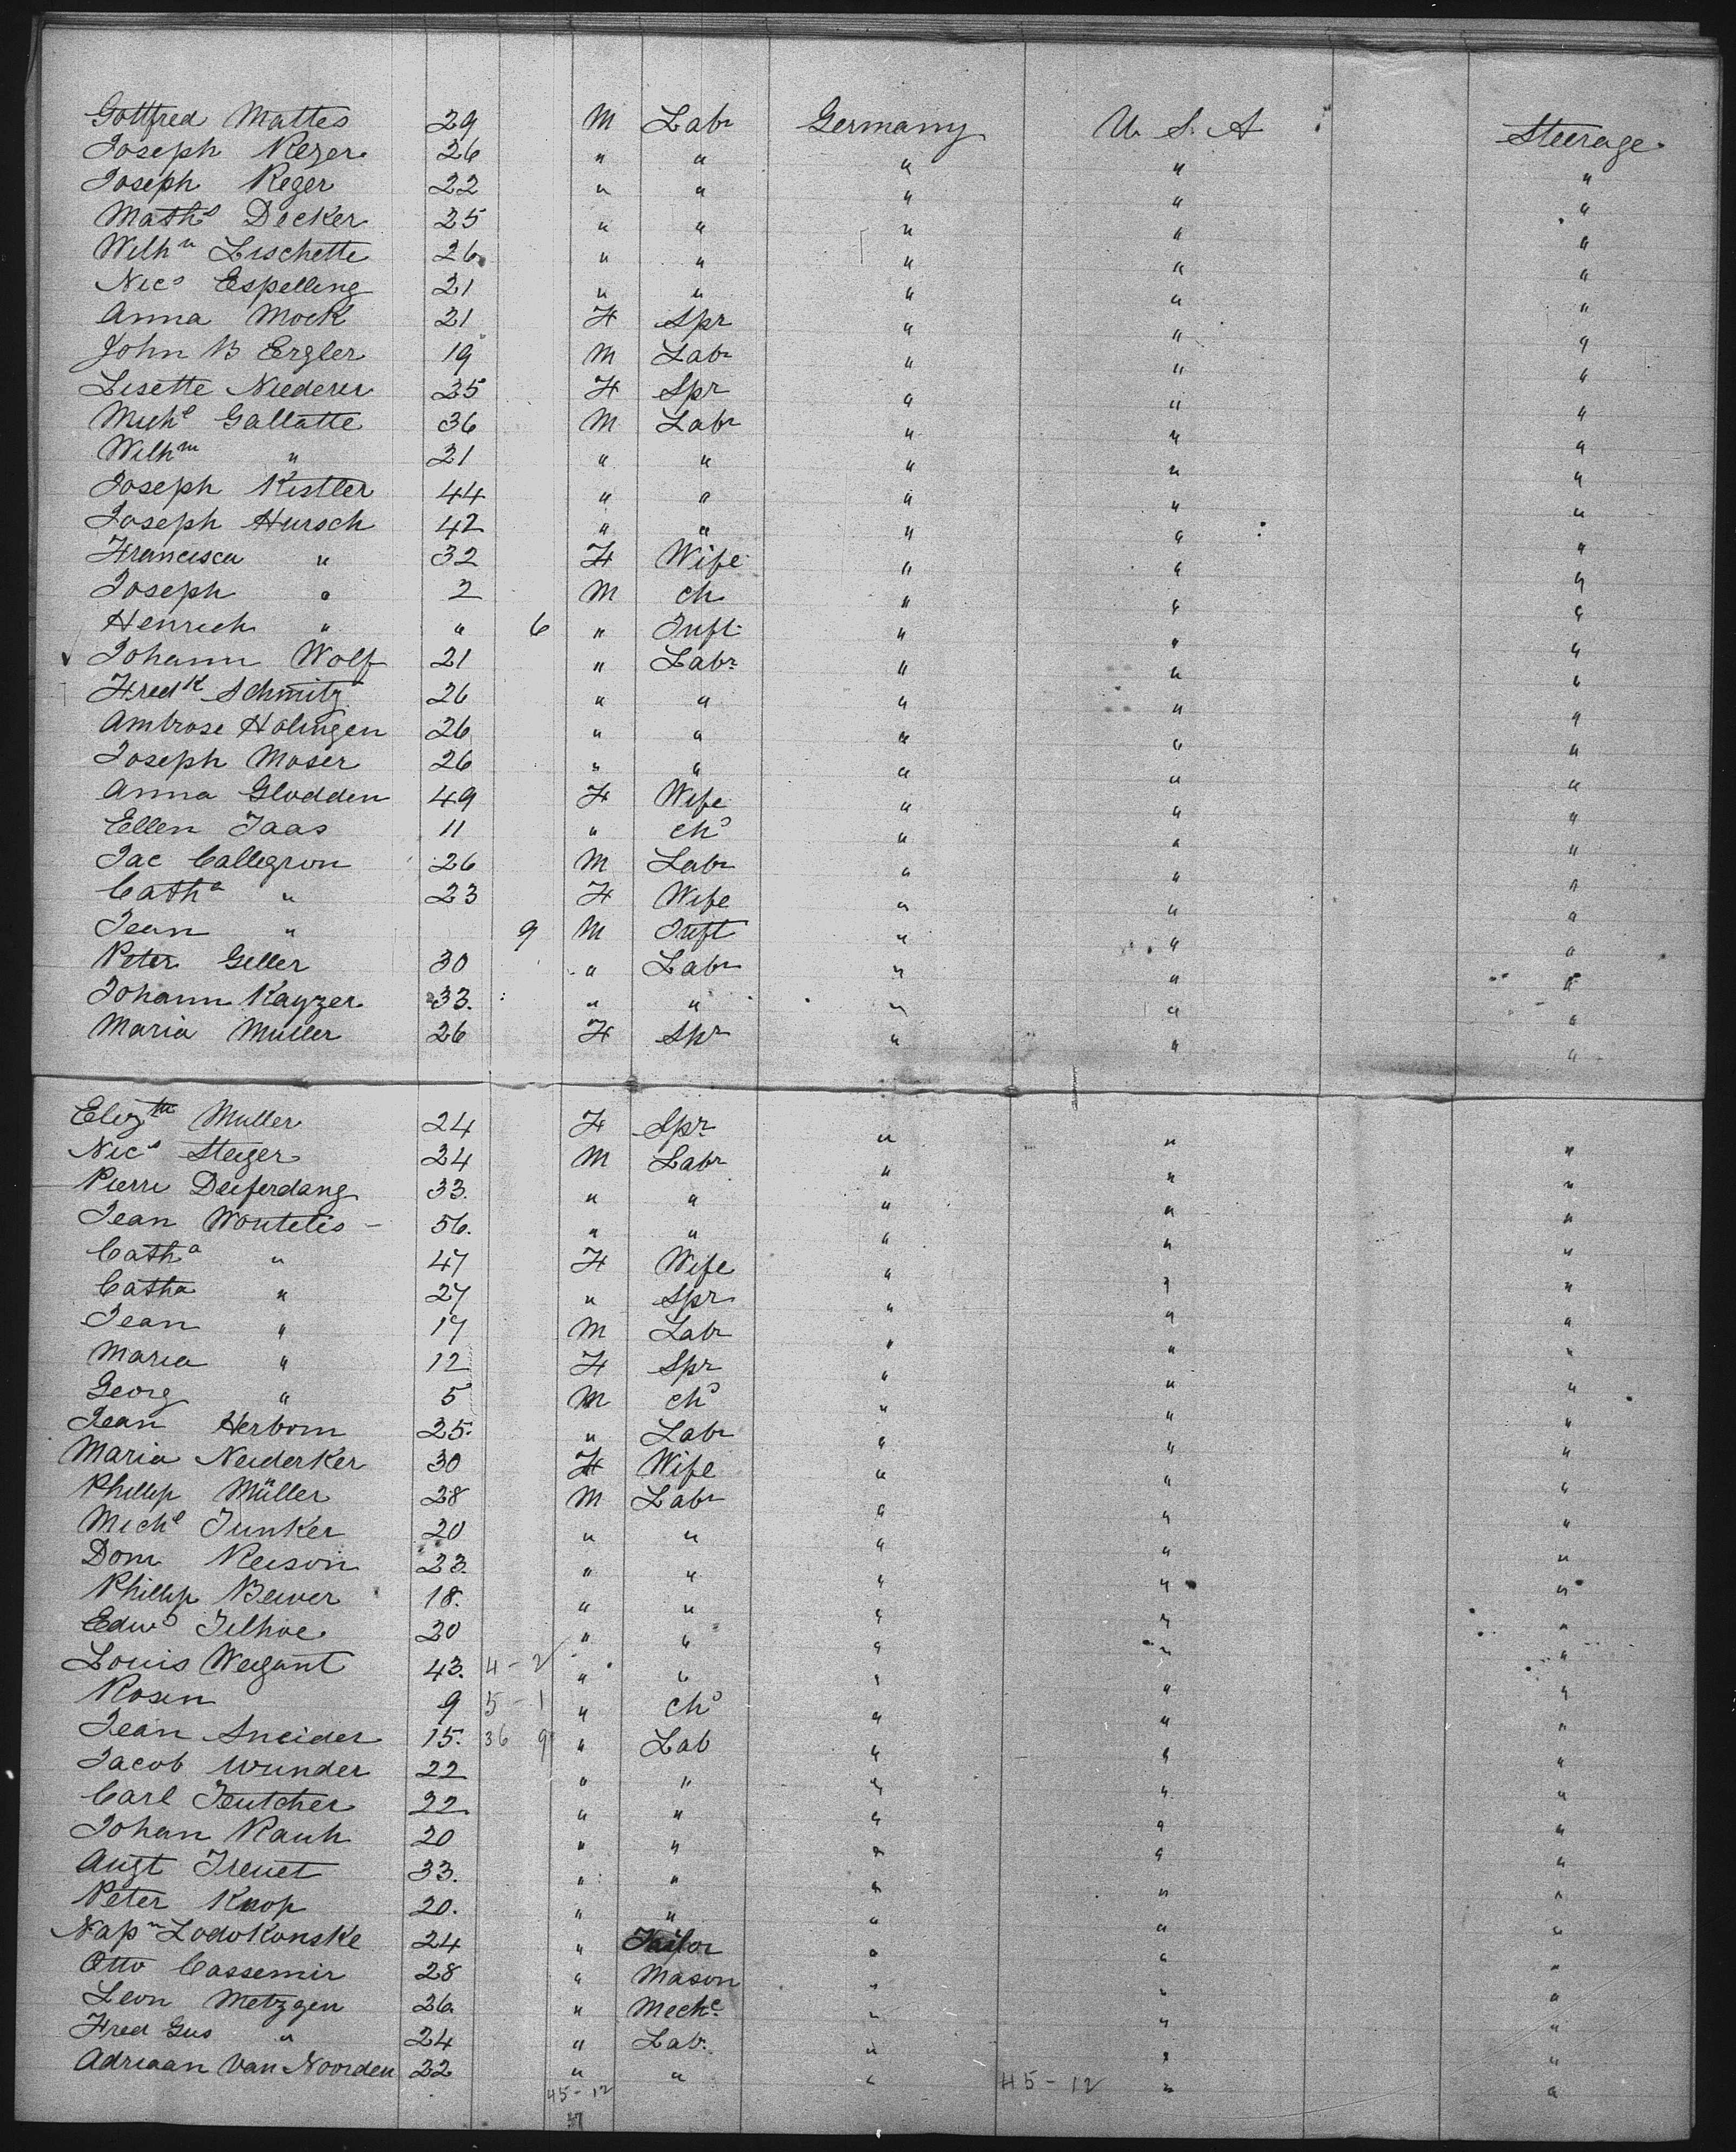 Gottfred Mattes 29 M Labr Germany U. S. A Steerage
Joseph Rezer 26 " " " " "
Joseph Reger 22 " " " " "
Maths Decker 25 " " " " "
Wilhm Lischette 26 " " " " "
Nics Espelling 21 " " " " "
Anna Mock 21 F Spr " " "
John B Ergler 19 M Labr " " "
Lisette Niederer 35 F Spr " " "
Michl Gallatte 36 M Labr " " "
Wilhm " 21 " " " " "
Joseph Kistler 44 " " " " "
Joseph Hursch 42 " " " " "
Francisca " 32 F Wife " " "
Joseph " 2 M ch " " "
Henrich " " 6 " Inft " " "
Johann Wolf 21 " Labr " " "
Fredk Schmitz 26 " " " " "
Ambrose Halingen 26 " " " " "
Joseph Moser 26 " " " " "
Anna Glodden 49 F Wife " " "
Ellen Jaas 11 " chd " " "
Jac Callegron 26 M Labr " " "
Catha " 23 F Wife " " "
Jean " 9 M Inft " " "
Peter Geller 30 " Labr " " "
Johann Kayzer 33. " " " " "
Maria Muller 26 F Spr " " "
Elizth Muller 24 F Spr " " "
Nics Steiger 24 M Labr " " "
Pierre Deiferdang 33. " " " " "
Jean Woutelis 56. " " " " "
Catha " 47 F Wife " " "
Catha " 27 " Spr " " "
Jean " 17 M Labr " " "
Maria " 12 F Spr " " "
Georg " 5 M chd " " "
Jean Herbom 25. " Labr " " "
Maria Neiderker 30 F Wife " " "
Phillip Müller 28 M Labr " " "
Michl Junker 20 " " " " "
Dom Reison 23. " " " " "
Phillip Bewer 18. " " " " "
Edwd Jelhoe 20 " " " " "
Louis Weigant 43. 4 - 2 " " " " "
Rosin 9 5 - 1 " chd " " "
Jean Sneider 15. 36 9 " Lab " " "
Jacob Wunder 22 " " " " "
Carl Teutcher 22 " " " " "
Johan Rauh 20 " " " " "
Augt Treuet 33. " " " " "
Peter Knop 20. " " " " "
Napn Lodokonske 24 " Tailor " " "
Otto Cassemir 28 " Mason " " "
Leon Metzgen 26 " Mechc " " "
Fred Gus " 24 " Labr. " " "
Adriaan Van Noorden 22 " " " " "
45 - 12 45 - 12